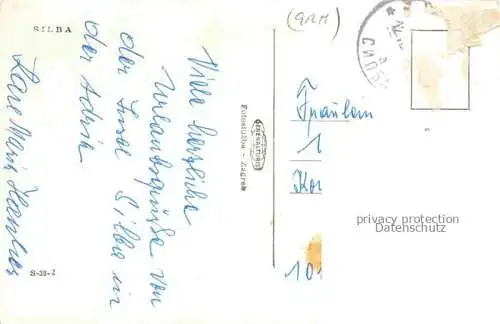 SILBA
Viele herzliche
Urlaubsgrüße von
der Insel Silba in
der Adria
S-33-2
Fotoslužba - Zagreb
(9RM)
Fräulein
1
Kor
101
privacy protection
Datenschutz